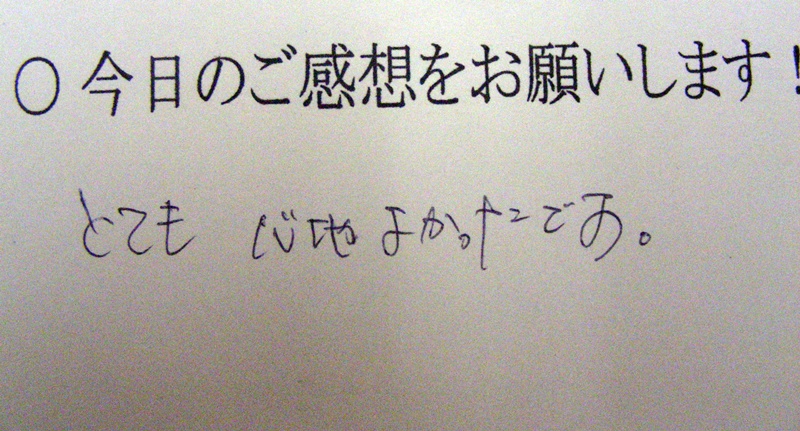 ○今日のご感想をお願いします！
とても 心地よかったです。